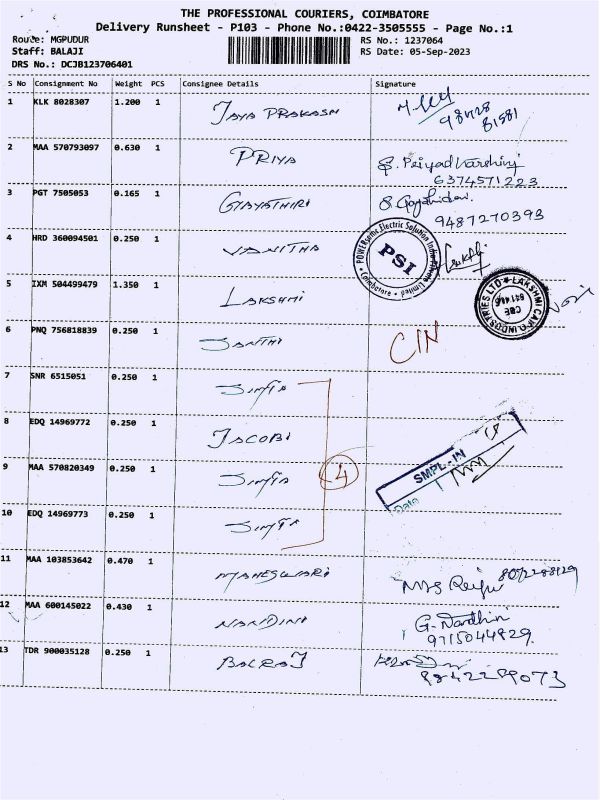 THE PROFESSIONAL COURIERS, COIMBATORE
Delivery Runsheet - P103 - Phone No.:0422-3505555 - Page No.:1
Route: MGPUDUR RS No.: 1237064
Staff: BALAJI RS Date: 05-Sep-2023
DRS No.: DCJB123706401
S No Consignment No Weight PCS Consignee Details Signature
1 KLK 8028307 1.200 1 JAYA PRAKASH
2 MAA 570793097 0.630 1 PRIYA
6374571223
3 PGT 7505053 0.165 1 GAYATHIRI
9487270393
4 HRD 360094501 0.250 1 VANITHA
POWERsonic Electric Solution India Private Limited
PSI
Coimbatore
5 IXM 504499479 1.350 1 LAKSHMI
LAKSHMI CARD INDUSTRIES LTD
CBE
641 406
6 PNQ 756818839 0.250 1 SANTHI CIN
7 SNR 6515051 0.250 1
8 EDQ 14969772 0.250 1 JACOBI
9 MAA 570820349 0.250 1 4 SMPL-IN
Date
10 EDQ 14969773 0.250 1
11 MAA 103853642 0.470 1 MAHESWARI
12 MAA 600145022 0.430 1 NANDINI G. Nandhini
9715044829.
13 TDR 900035128 0.250 1 BALRAJ
9842289073